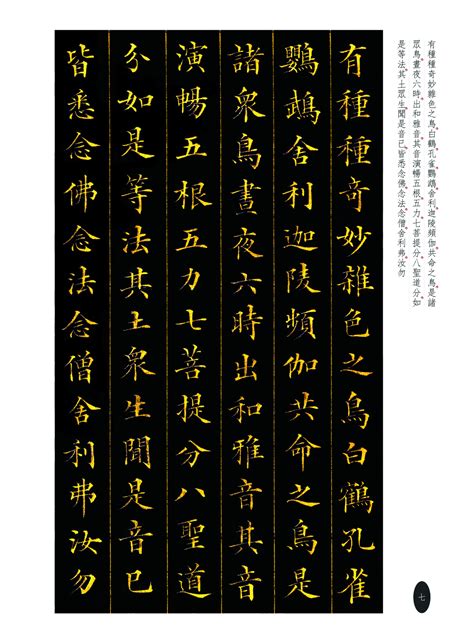 有種種奇妙雜色之鳥白鶴孔雀鸚鵡舍利迦陵頻伽共命之鳥是諸
眾鳥晝夜六時出和雅音其音演暢五根五力七菩提分八聖道分如
是等法其土眾生聞是音已皆悉念佛念法念僧舍利弗汝勿
有種種奇妙雜色之鳥白鶴孔雀
鸚鵡舍利迦陵頻伽共命之鳥是
諸衆鳥晝夜六時出和雅音其音
演暢五根五力七菩提分八聖道
分如是等法其土衆生聞是音已
皆悉念佛念法念僧舍利弗汝勿
七